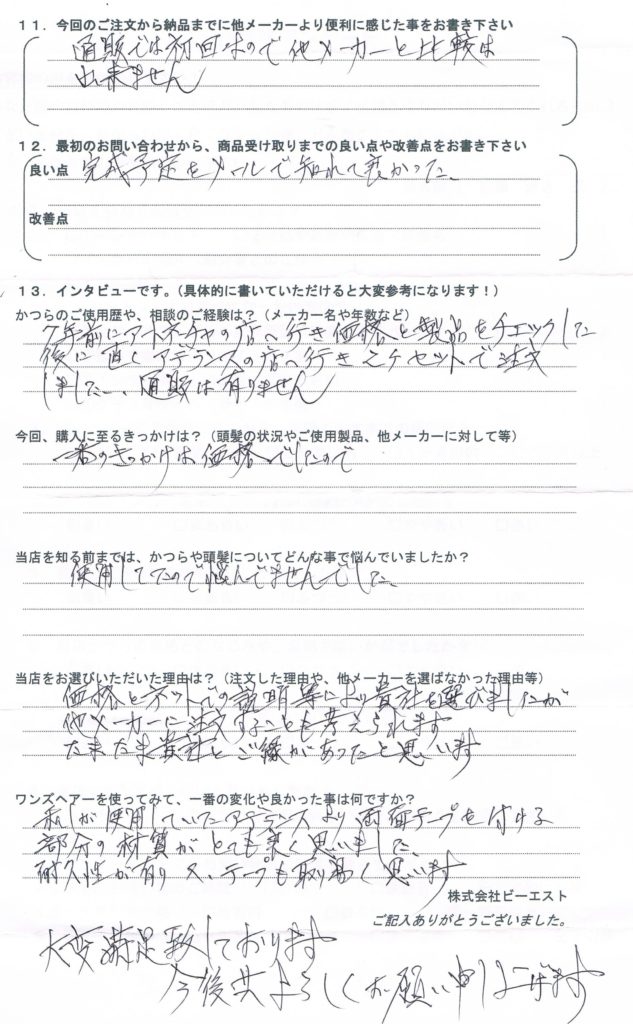 11．今回のご注文から納品までに他メーカーより便利に感じた事をお書き下さい
通販では初回なので他メーカーと比較は
出来ません
12．最初のお問い合わせから、商品受け取りまでの良い点や改善点をお書き下さい
良い点 完成予定をメールで知れて良かった、
改善点
13．インタビューです。（具体的に書いていただけると大変参考になります！）
かつらのご使用歴や、相談のご経験は？（メーカー名や年数など）
7年前にアートネイチャの店へ行き価格と製品をチェックした
後に直ぐアデランスの店へ行き2チセットで注文
しました、通販は有りません
今回、購入に至るきっかけは？（頭髪の状況やご使用製品、他メーカーに対して等）
一番のきっかけは価格でしたので
当店を知る前までは、かつらや頭髪についてどんな事で悩んでいましたか？
使用してたので悩んでませんでした、
当店をお選びいただいた理由は？（注文した理由や、他メーカーを選ばなかった理由等）
価格とネットでの説明等により貴社を選びましたが
他メーカーに注文することも考えられます
たまたま貴社とご縁があったと思います
ワンズヘアーを使ってみて、一番の変化や良かった事は何ですか？
私が使用していたアデランスより両面テープを付ける
部分の材質がとても良く思いました、
耐久性が有り又、テープも取り易く思います
株式会社ビーエスト
ご記入ありがとうございました。
大変満足致しております
今後共よろしくお願い申し上げます